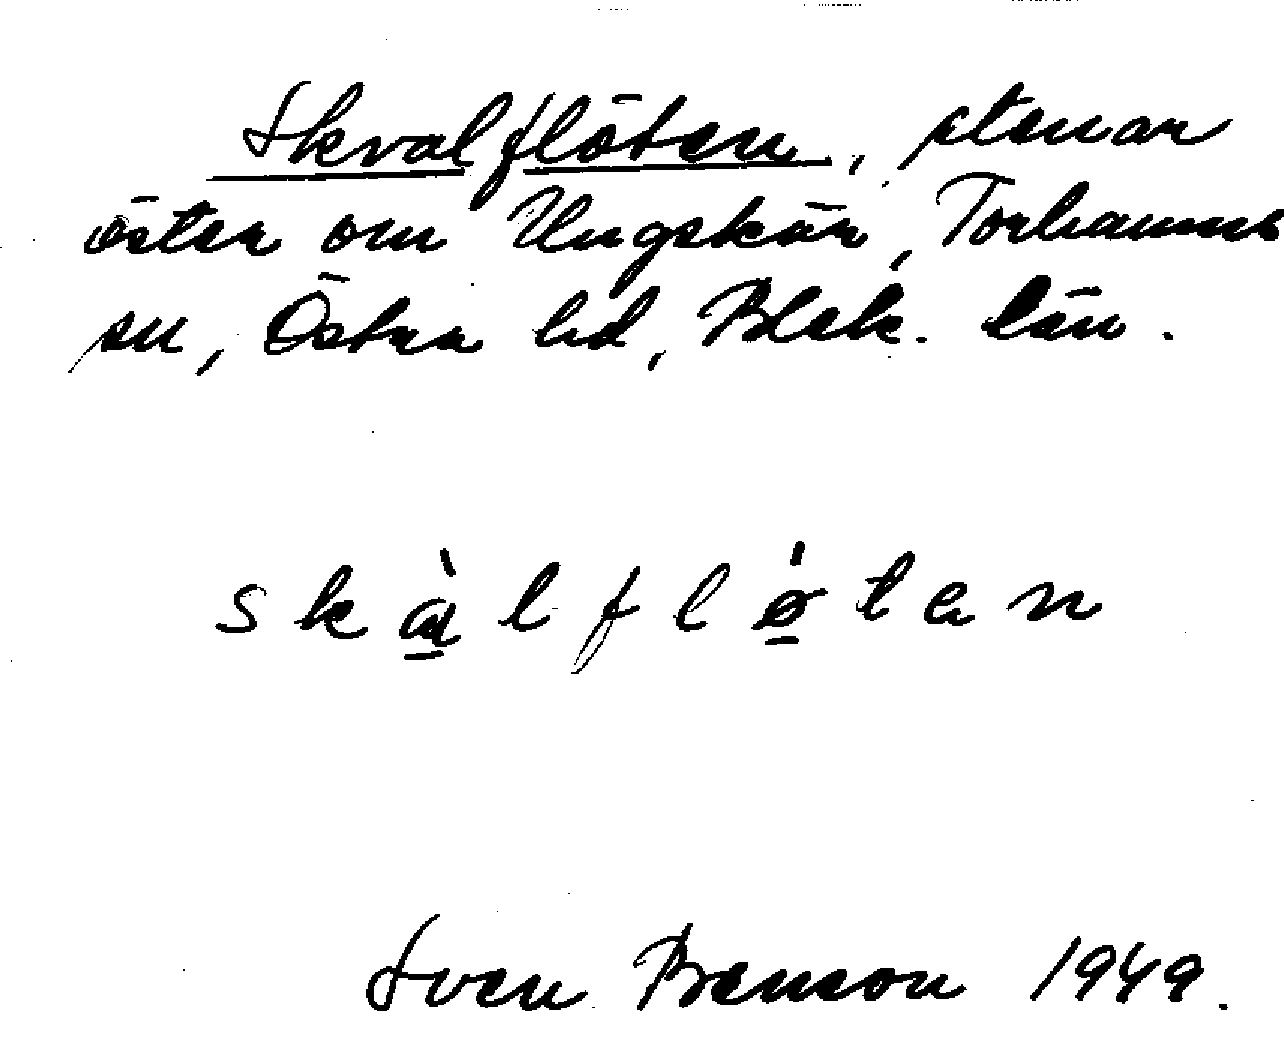 Skvalflöten, stenar
öster om Ungskär, Torhamns
sn, Östra hd, Blek. län.
skàlfløten
Sven Benson 1949.